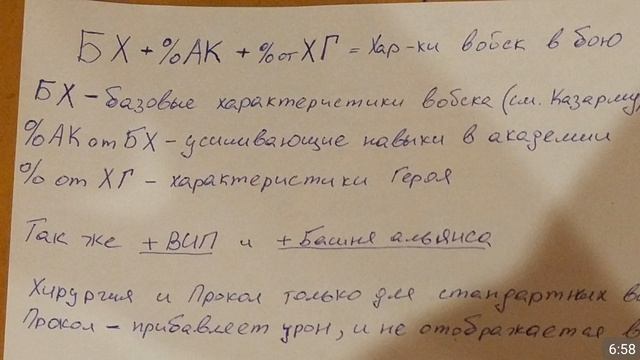 БХ + %АК + %от ХГ = Хар-ки войск в бою
БХ - базовые характеристики войска (см. Казарму)
%АК от БХ - усиливающие навыки в академии
% от ХГ - характеристики Героя
Так же +ВИП и +Башня альянса
Хирургия и Прокол только для стандартных
Прокол - прибавляет урон, и не отображается в
6:58